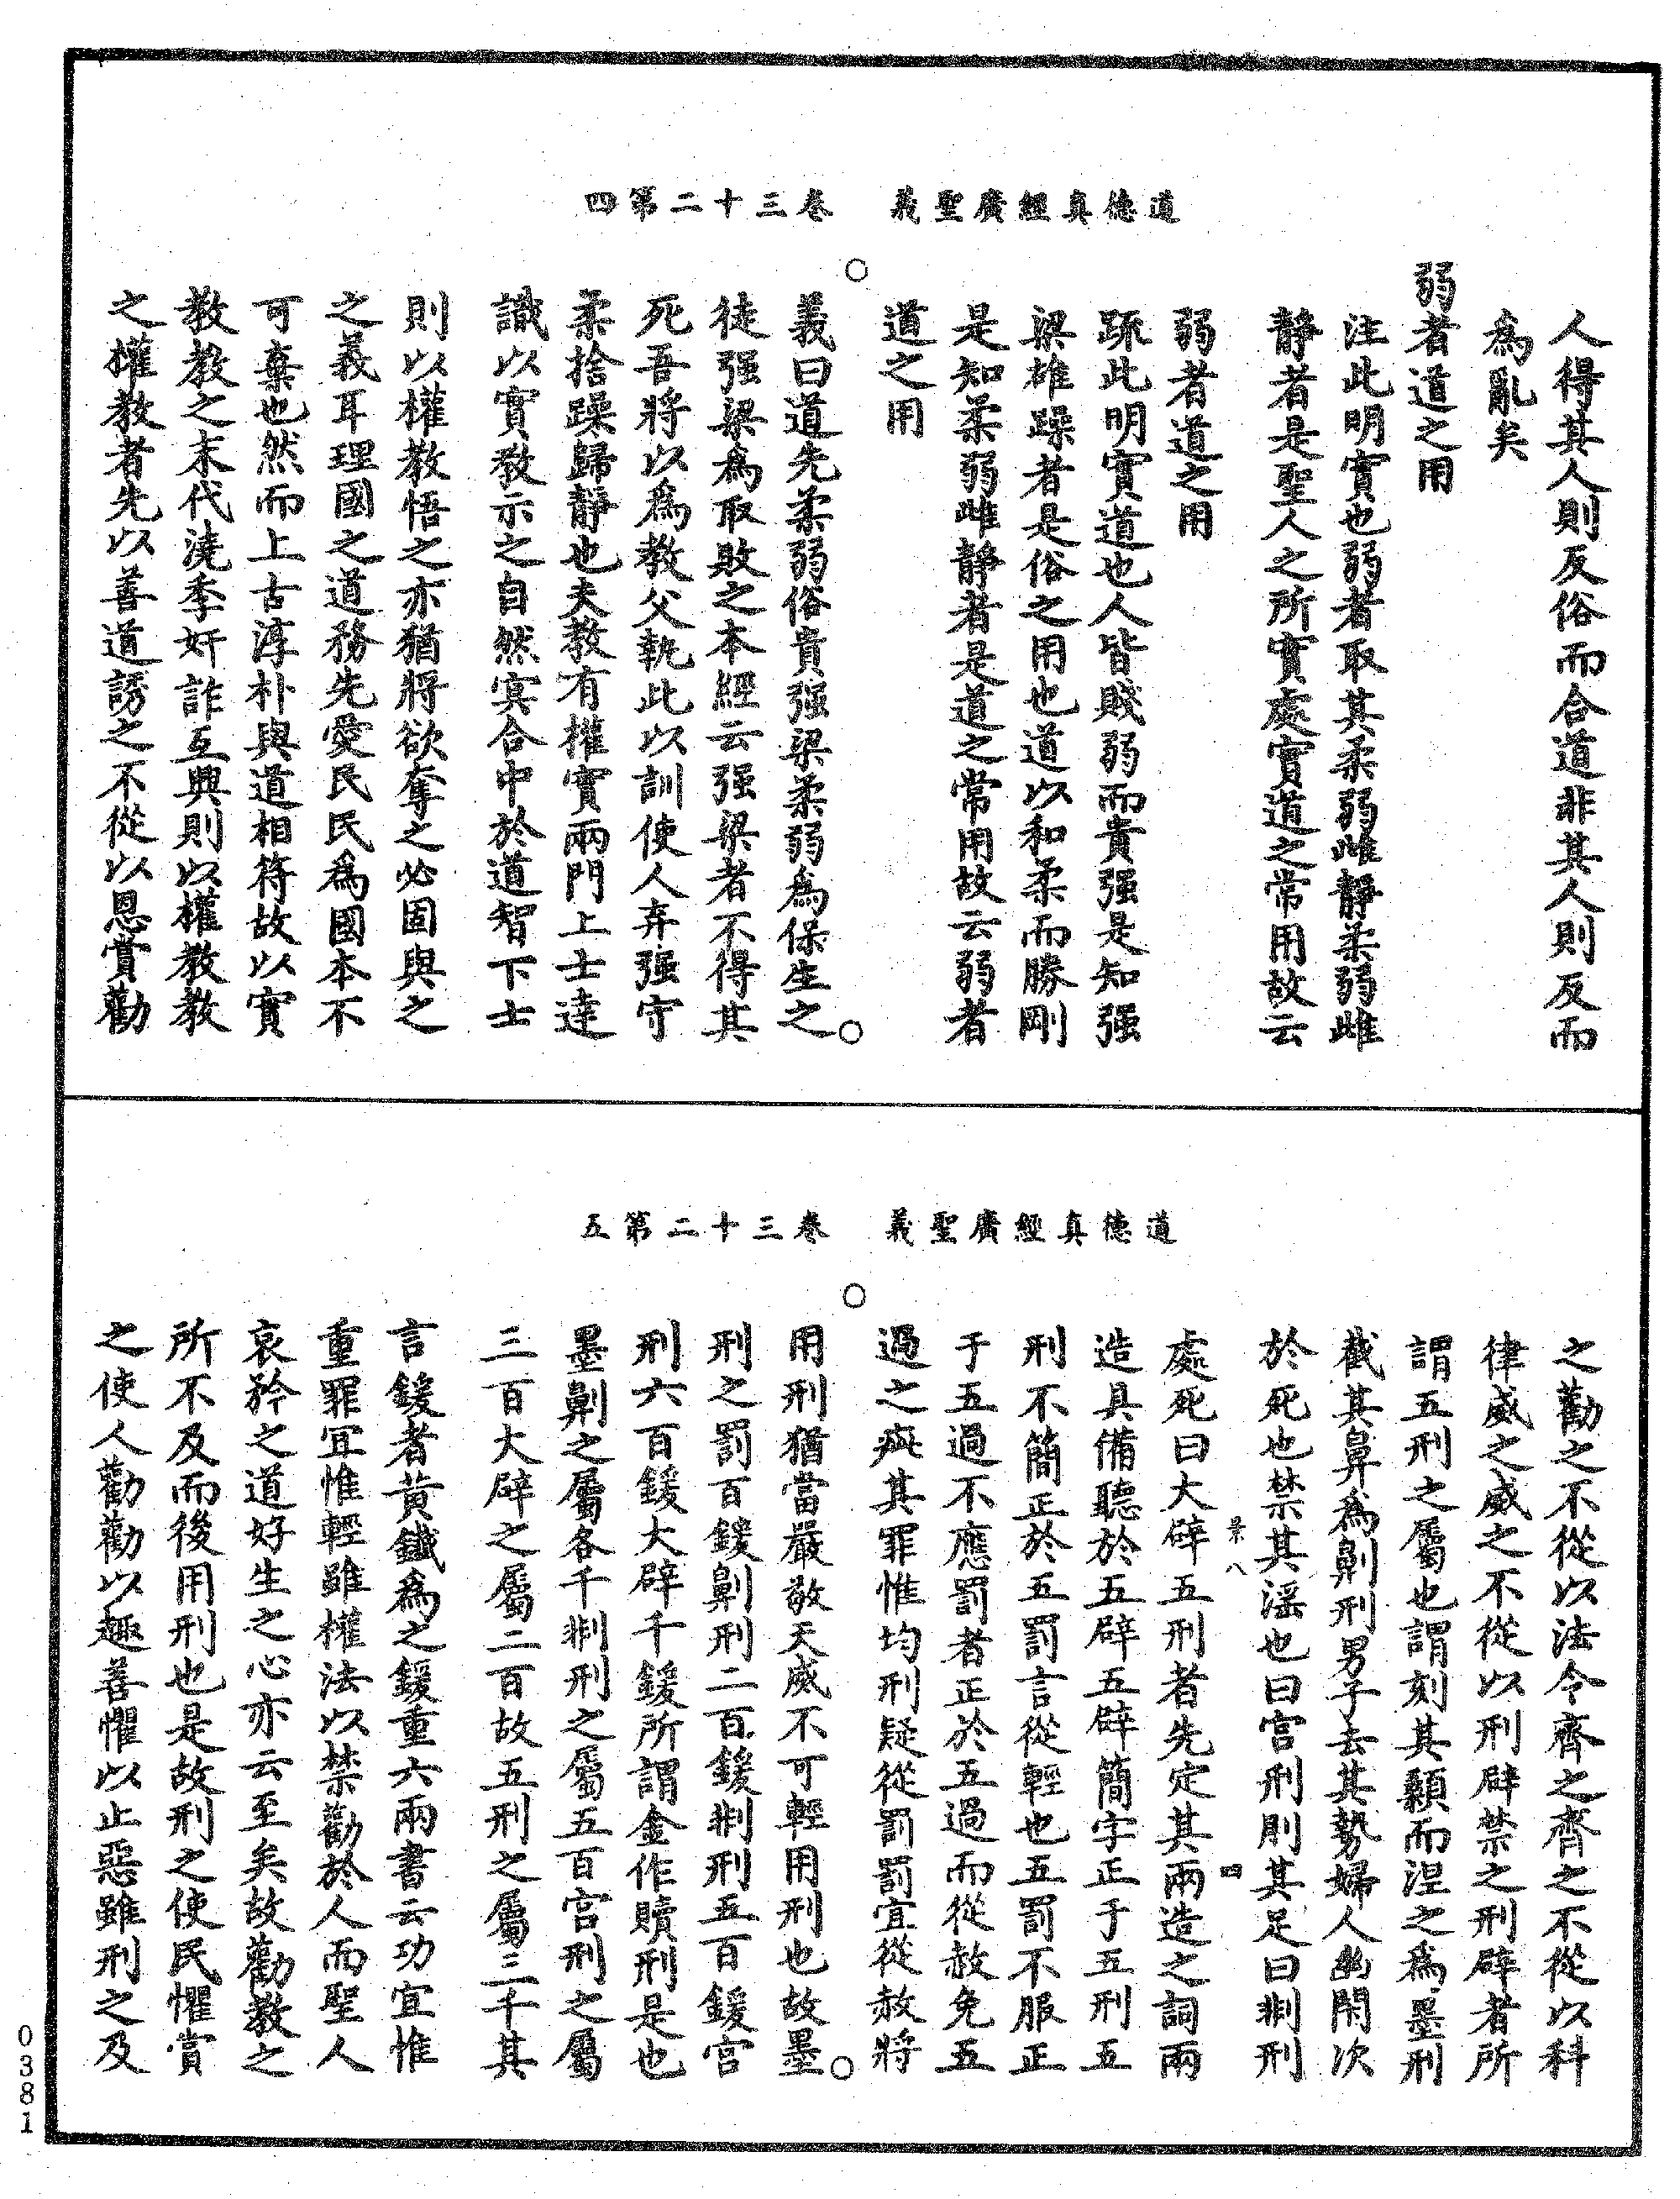 道德真經廣聖義　卷三十二第四
人得其人則反俗而合道非其人則反而
爲亂矣
弱者道之用
注此明實也弱者取其柔弱雌靜柔弱雌
靜者是聖人之所實處實道之常用故云
弱者道之用
疏此明實道也人皆賤弱而貴强是知强
梁雄躁者是俗之用也道以和柔而勝剛
是知柔弱雌靜者是道之常用故云弱者
道之用
義曰道先柔弱俗貴强梁柔弱爲保生之
徒强梁爲取敗之本經云强梁者不得其
死吾將以爲教父執此以訓使人弃强守
柔捨躁歸靜也夫教有權實兩門上士達
識以實教示之自然冥合中於道智下士
則以權教悟之亦猶將欲奪之必固與之
之義耳理國之道務先愛民民爲國本不
可棄也然而上古淳朴與道相符故以實
教教之末代澆季奸詐互興則以權教教
之權教者先以善道誘之不從以恩賞勸
道德真經廣聖義　卷三十二第五
之勸之不從以法令齊之齊之不從以科
律威之威之不從以刑辟禁之刑辟者所
謂五刑之屬也謂刻其顙而涅之爲墨刑
截其鼻爲劓刑男子去其勢婦人幽閉次
於死也禁其淫也曰宫刑刖其足曰剕刑
景八　四
處死曰大辟五刑者先定其兩造之詞兩
造具備聽於五辟五辟簡字正于五刑五
刑不簡正於五罰言從輕也五罰不服正
于五過不應罰者正於五過而從赦免五
過之疵其罪惟均刑疑從罰罰宜從赦將
用刑猶當嚴敬天威不可輕用刑也故墨
刑之罰百鍰劓刑二百鍰剕刑五百鍰宫
刑六百鍰大辟千鍰所謂金作贖刑是也
墨劓之屬各千剕刑之屬五百宫刑之屬
三百大辟之屬二百故五刑之屬三千其
言鍰者黄鐵爲之鍰重六兩書云功宜惟
重罪宜惟輕雖權法以禁勸於人而聖人
哀矜之道好生之心亦云至矣故勸教之
所不及而後用刑也是故刑之使民懼賞
之使人勸勸以趣善懼以止惡雖刑之及
0381